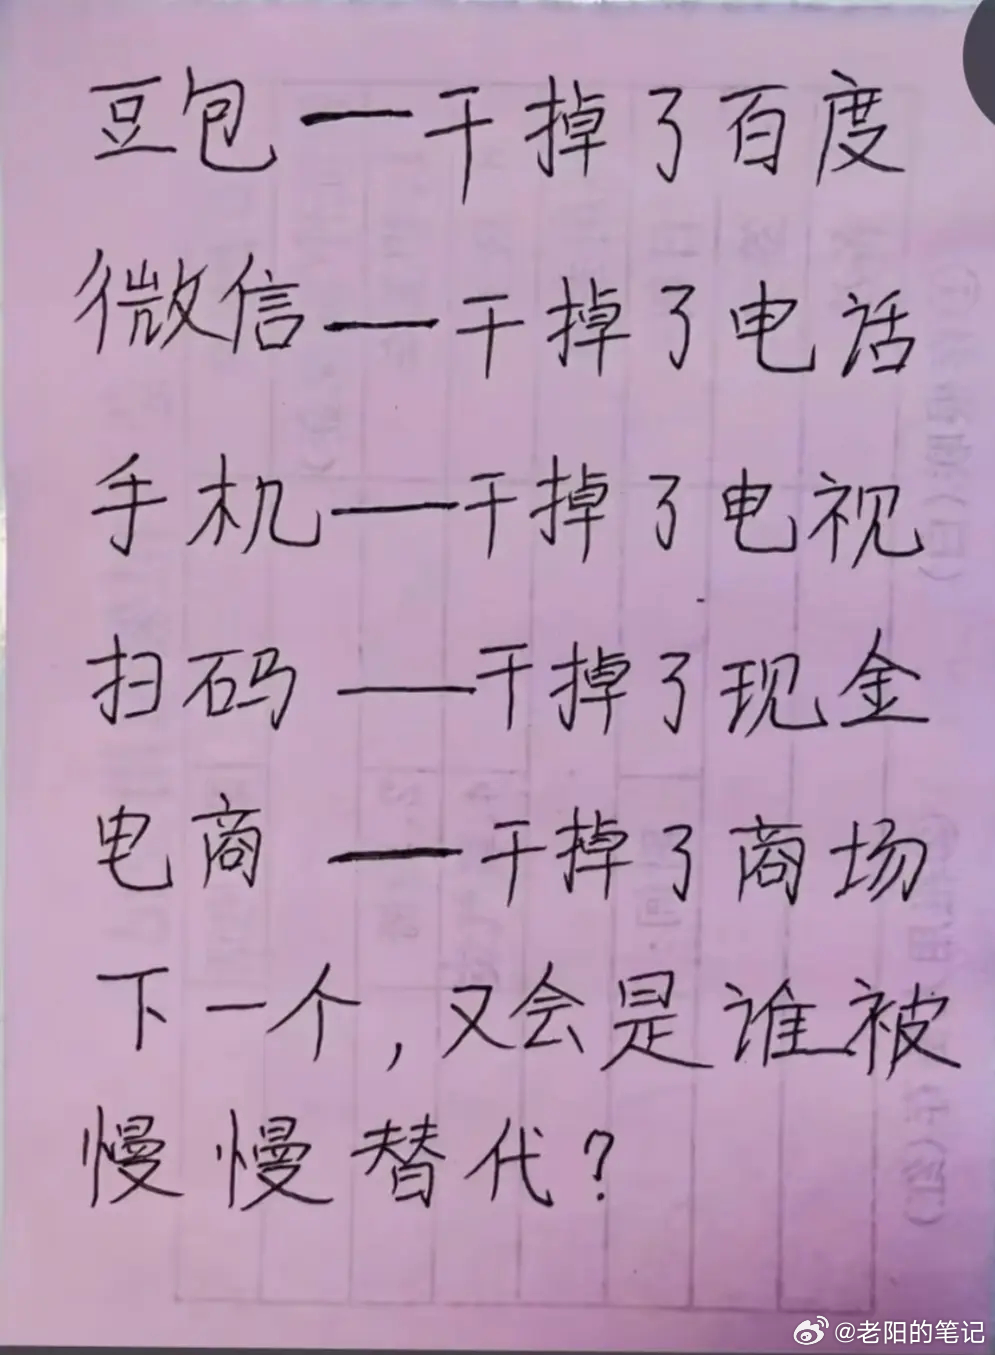 豆包一干掉了百度
微信一干掉了电话
手机一干掉了电视
扫码一干掉了现金
电商一干掉了商场
下一个,又会是谁被
慢慢替代?
@老阳的笔记